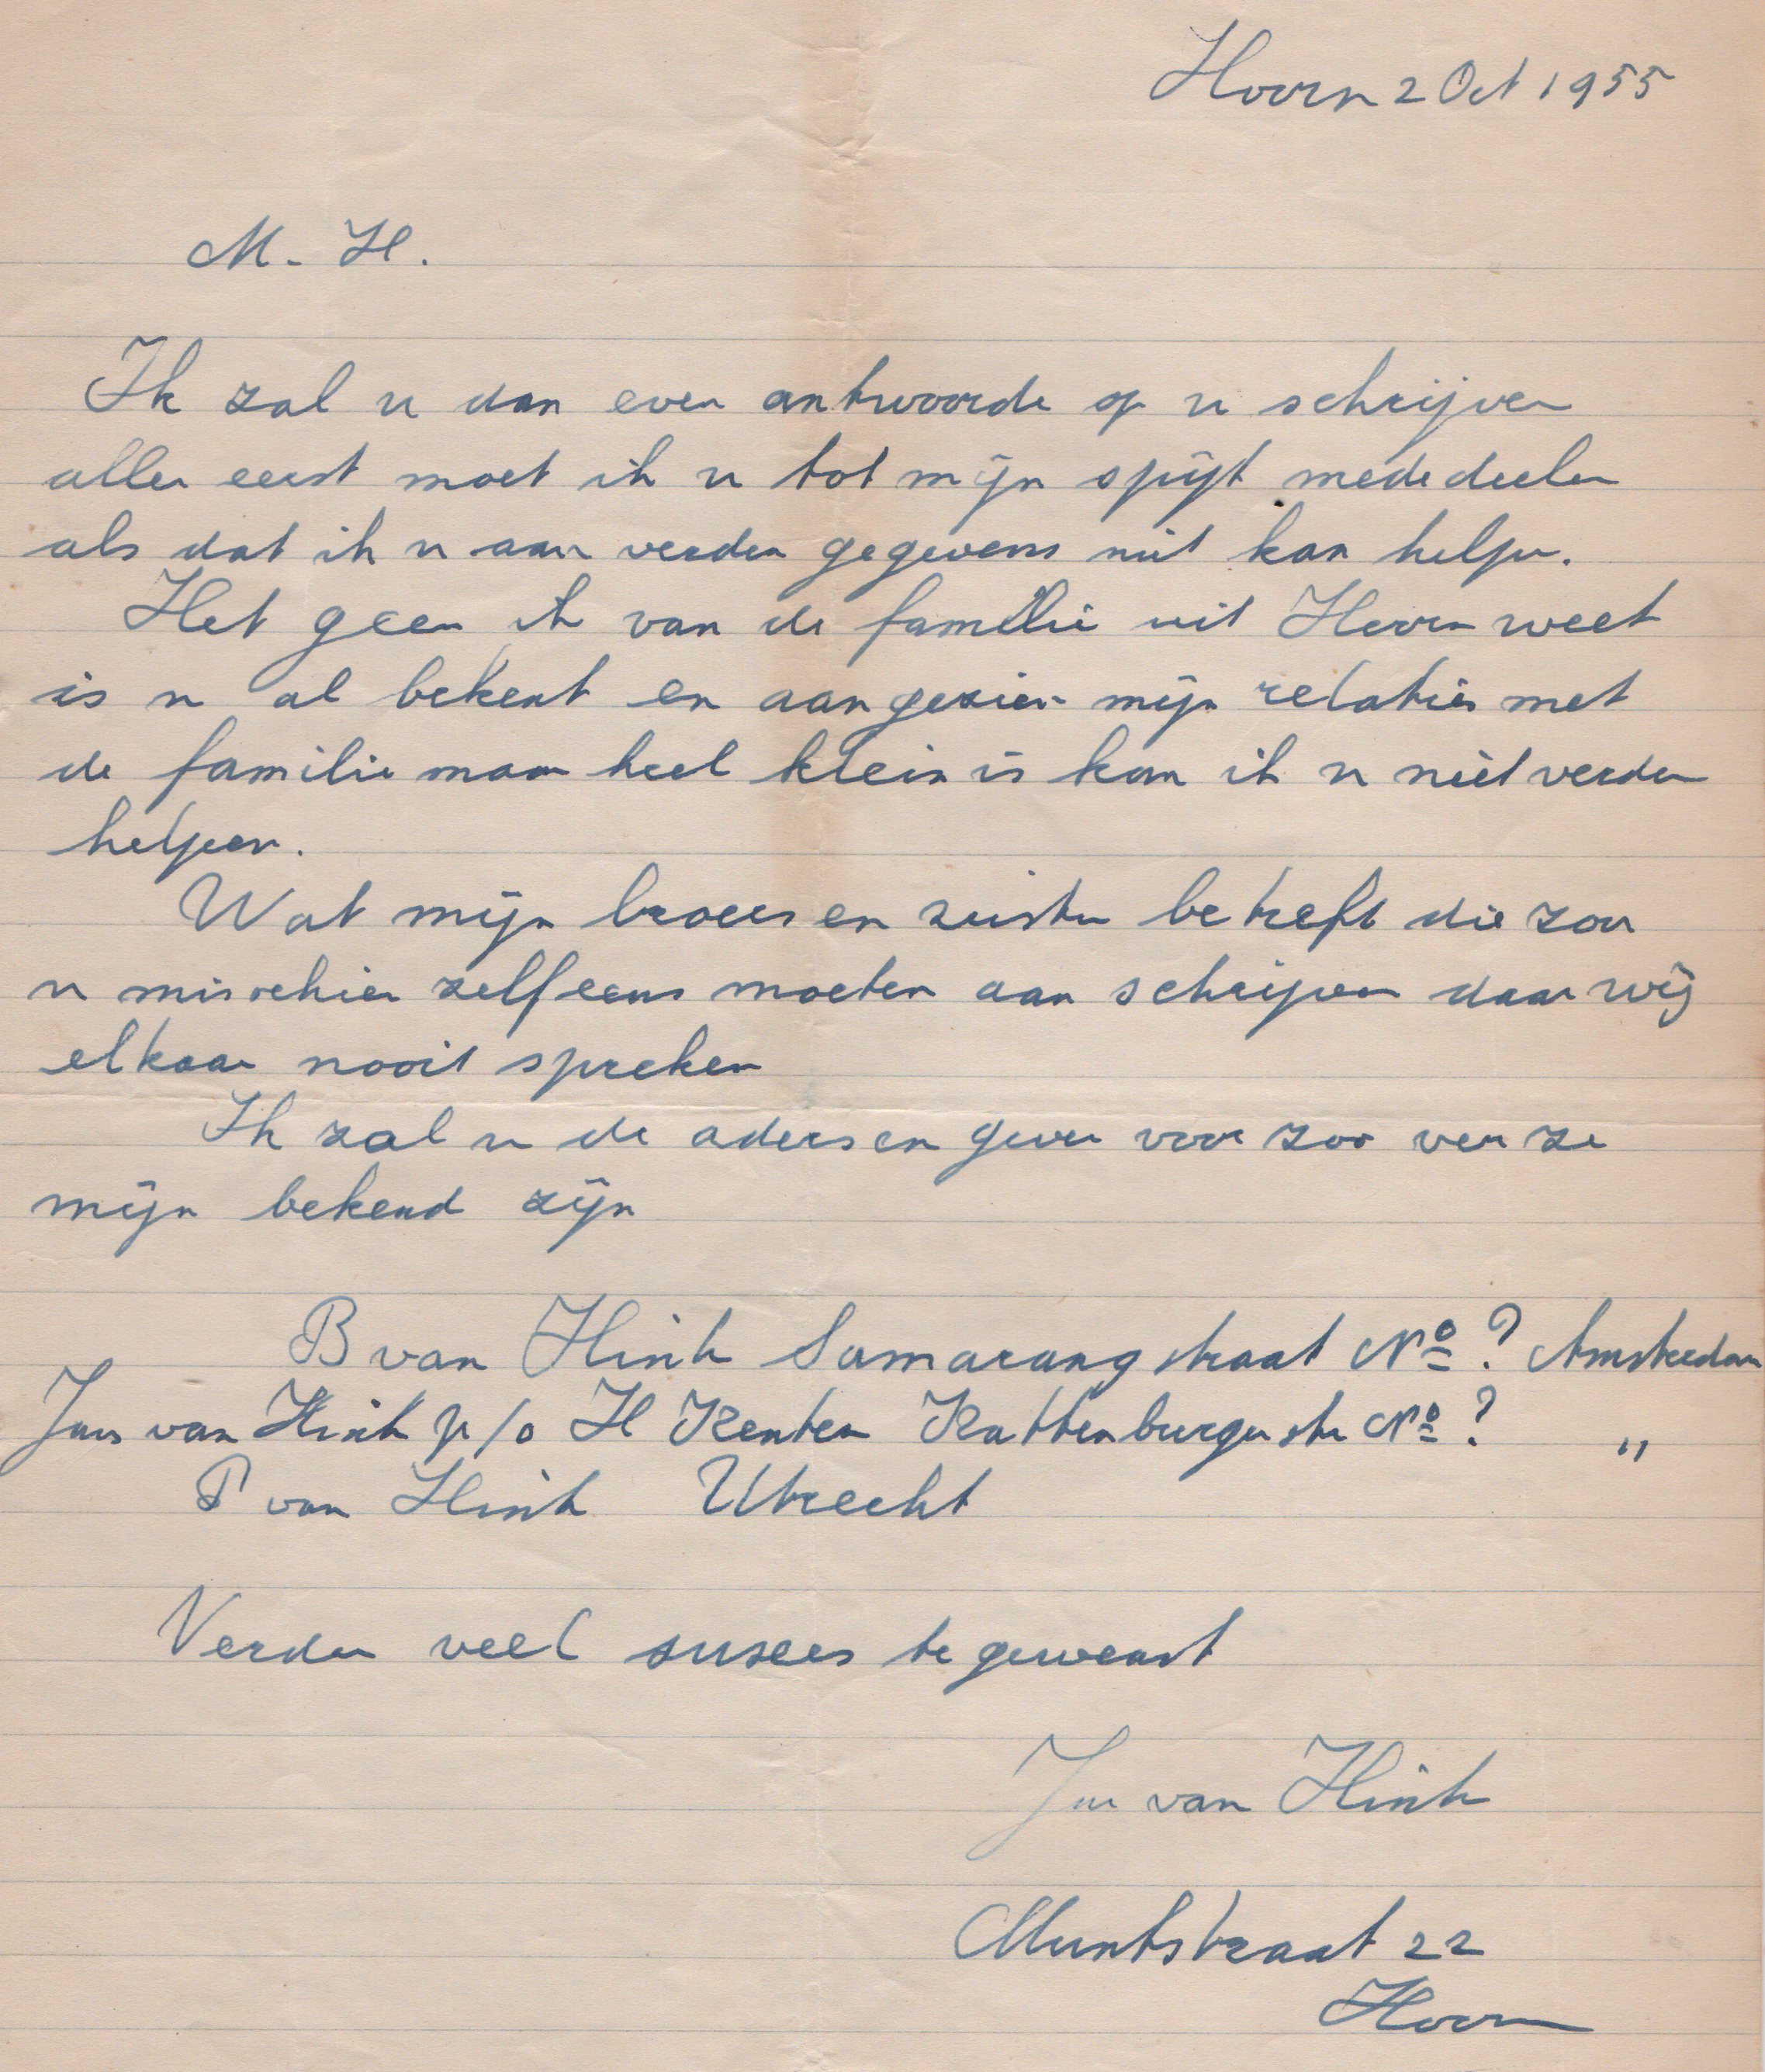 Hoorn 2 Oct 1955
M. H.
Ik zal u dan even antwoorde op u schrijven
aller eerst moet ik u tot mijn spijt mededeelen
als dat ik u aan verder gegevens niet kan helpen.
Het geen ik van de familie uit Hoorn weet
is u al bekent en aangezien mijn relaties met
de familie maar heel klein is kan ik u niet verder
helpen.
Wat mijn broers en zuster betreft die zou
u misschien zelf eens moeten aan schrijven daar wij
elkaar nooit spreken
Ik zal u de adersen geven voor zoo ver ze
mijn bekend zijn
B van Hinh Samarangstraat No ? Amsterdam
Jans van Hinh p/o H Kenter Kattenburger str No ? "
P van Hinh Utrecht
Verder veel susees te gewenst
van Hinh
Muntstraat 22
Hoorn